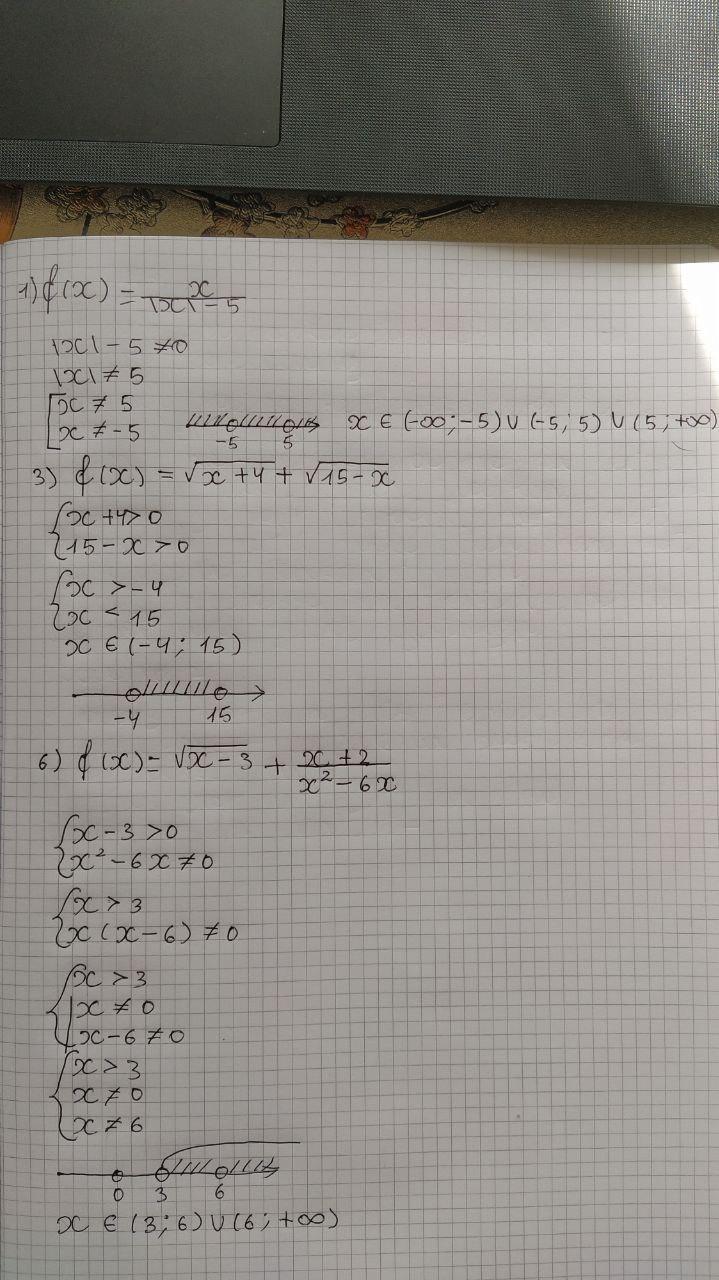 1) f(x) = x / (|x| - 5)
|x| - 5 ≠ 0
|x| ≠ 5
[ x ≠ 5
[ x ≠ -5
-5 5
x ∈ (-∞; -5) ∪ (-5; 5) ∪ (5; +∞)
3) f(x) = √(x+4) + √(15-x)
{ x + 4 > 0
{ 15 - x > 0
{ x > -4
{ x < 15
x ∈ (-4; 15)
-4 15
6) f(x) = √(x-3) + (x+2) / (x² - 6x)
{ x - 3 > 0
{ x² - 6x ≠ 0
{ x > 3
{ x(x-6) ≠ 0
{ x > 3
{ x ≠ 0
{ x - 6 ≠ 0
{ x > 3
{ x ≠ 0
{ x ≠ 6
0 3 6
x ∈ (3; 6) ∪ (6; +∞)